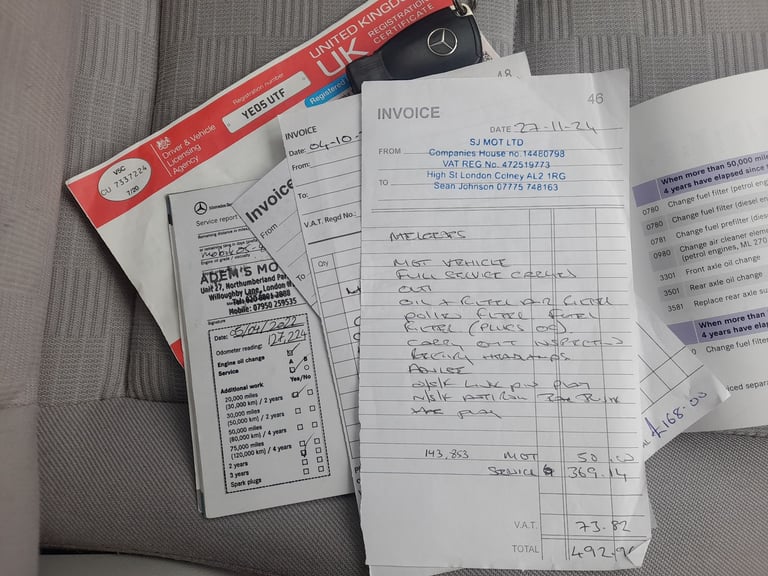 UNITED KINGDOM
UK
REGISTRATION
CERTIFICATE
Registration number
YE05 UTF
Registered
Driver & Vehicle
Licensing
Agency
VSC
CU 7337224
7/20
Service report
ADEM'S MO
Unit 27, Northumberland Par
Willoughby Lane, London
Tel: 020 8801 3888
Mobile: 07950 259535
Signature
Date: 05/04/2022
Odometer reading: 127,224
Engine oil change
A B
Service
Yes/No
Additional work
20,000 miles
(30,000 km) / 2 years
30,000 miles
(50,000 km) / 2 years
50,000 miles
(80,000 km) / 4 years
75,000 miles
(120,000 km) / 4 years
2 years
3 years
Spark plugs
Invoice
From
To
48
INVOICE
Date: 04-10-
From:
To:
V.A.T. Regd No:
Qty
INVOICE
46
DATE 27-11-24
FROM
SJ MOT LTD
Companies House no.14460798
VAT REG No. 472519773
TO
High St London Colney AL2 1RG
Sean Johnson 07775 748163
MERCEDES
MOT VEHICLE
FULL SERVICE CARRIED
OUT
OIL + FILTER AIR FILTER
POLLEN FILTER FUEL
FILTER (PLUGS OK)
CARRY OUT INSPECTED
HEADLAMPS
ADVISE
N/S/R LINK PIN PLAY
PLAY
143,853 MOT 50.00
SERVICE 369.14
V.A.T. 73.82
TOTAL 492.96
£168.00
When more than 50,000 mile
4 years have elapsed since t
0780 Change fuel filter (petrol eng
0780 Change fuel filter (diesel en
0781 Change fuel prefilter (diesel
0980 Change air cleaner eleme
(petrol engines, ML 270
3301 Front axle oil change
3501 Rear axle oil change
3581 Replace rear axle su
When more than
4 years have elap
0780 Change fuel filter
iced separa